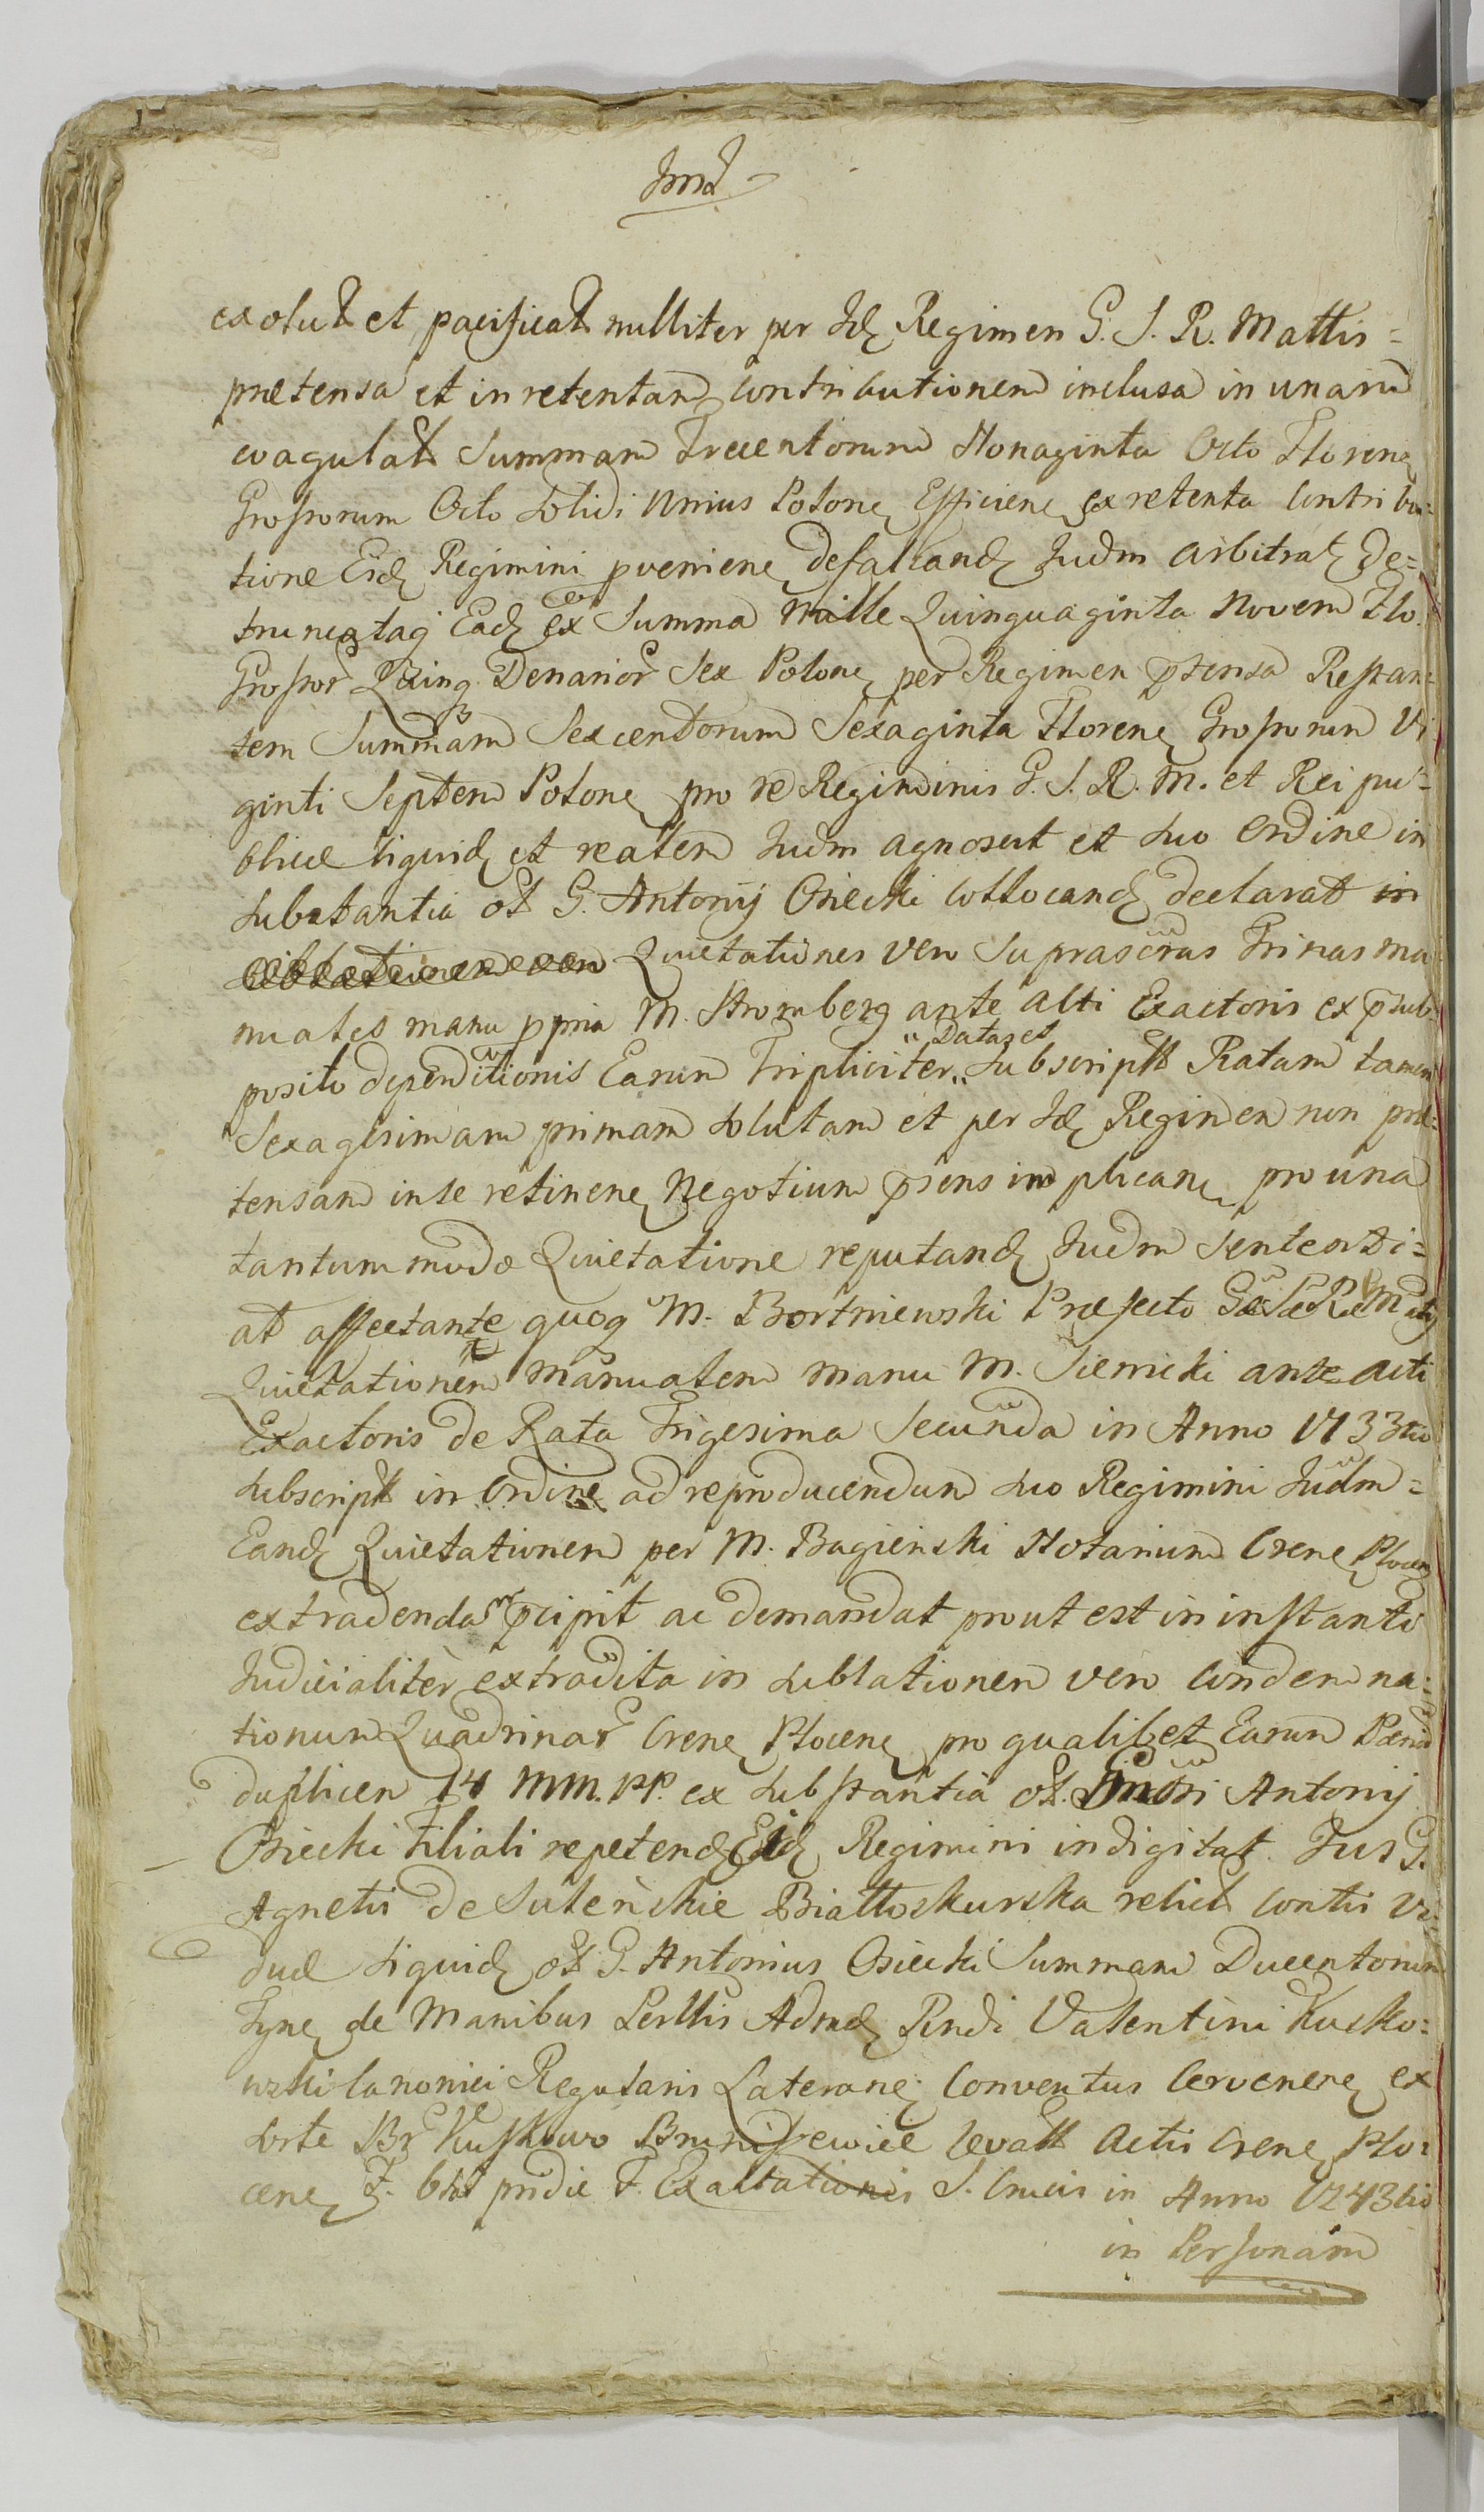 exolut et pacificat nulliter per Id Regimen G. S. R. Mattis=
prætensa et in retentam contributionem inclusa in unam
coagulat Summam Trecentorum Nonaginta Octo Floren
Grossorum Octo Solidi Unius Polon Efficien ex retenta Contribu=
tione Eid Regimini provenien defalcand Judm arbitrat De=
truncataq Ead ex Summa Mille Quinquaginta Novem Flo.
Grossor Quinq Denarior Sex Polon per Regimen ptensa Restan
tem Summam Sexcentorum Sexaginta Floren Grossorum Vi
ginti Septem Polon pro re Regiminis G. S. R. M. et Reipu=
blicæ liquid et realem Judm agnoscit et suo Ordine in
Substantia ol G. Antonij Osiecki collocand declarat
Quietationes vero suprascras Trinas ma
nuales manu ppria M. Stromberg ante alti Exactoris ex psub
posito deperditionis Earum Tripliciter Datas et Subscript Ratam tamen
Sexagesimam primam solutam et per Id Regimen non præ=
tensam in se retinen Negotium psens implican pro una
tantummodo Quietatione reputand Judm Sententi=
at affectante quoq M. Bortniewski Præfecto G S R M
Quietationem Manualem manu M. Siemicki ante acti
Exactoris de Rata Trigesima Secunda in Anno 1733tio
Subscript in Ordine ad reproducendum suo Regimini Judm=
Eand Quietationem per M. Bagienski Notarium Cren Plocen
extradendam pcipit ac demandat prout est in instanti
Judicialiter extradita in Sublationem vero Condemna=
tionum Quadrinar Cren Plocen pro qualibet Earum Pæna
duplicem 14 MM. PP. ex Substantia ol. Antonij
Osiecki Filiali repetend Eid Regimini indigitat. Jus G.
Agnetis de Suleńskie Białłoskurska relict Contis Vi
duæ Liquid ol G. Antonius Osiecki Summam Ducentorum
Tyn de Manibus Perllis Admd Rndi Valentini Kusko=
wski Canonici Regularis Lateran Conventus Cervenen ex
Sorte Br Kuskowo Bronissewice levatt Actis Cren Plo=
cen F. 6ta pridie F. Exaltationis S. Crucis in Anno 1743tio
in Personam